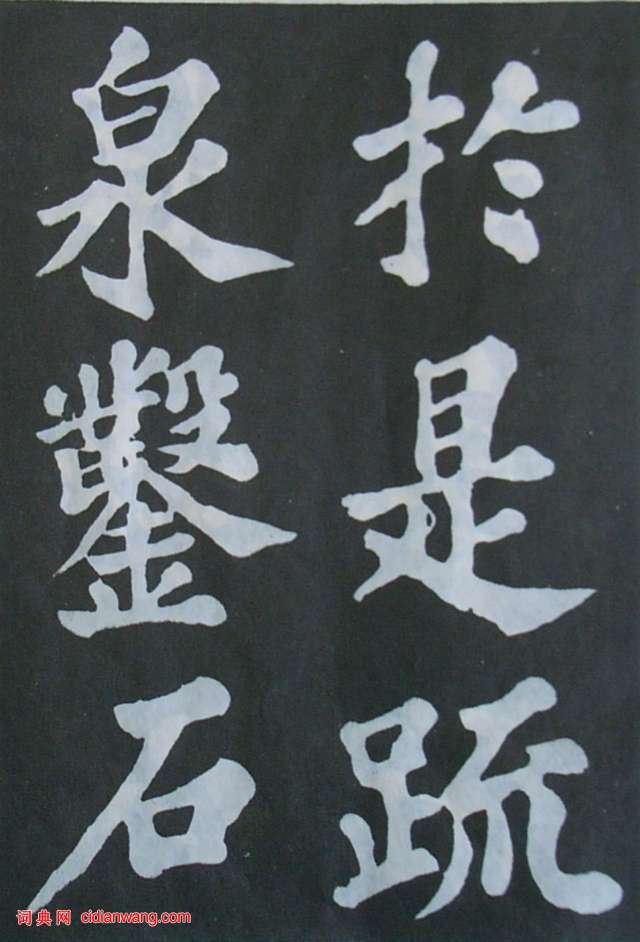 於是疏
泉鑿石
词典网 cidianwang.com